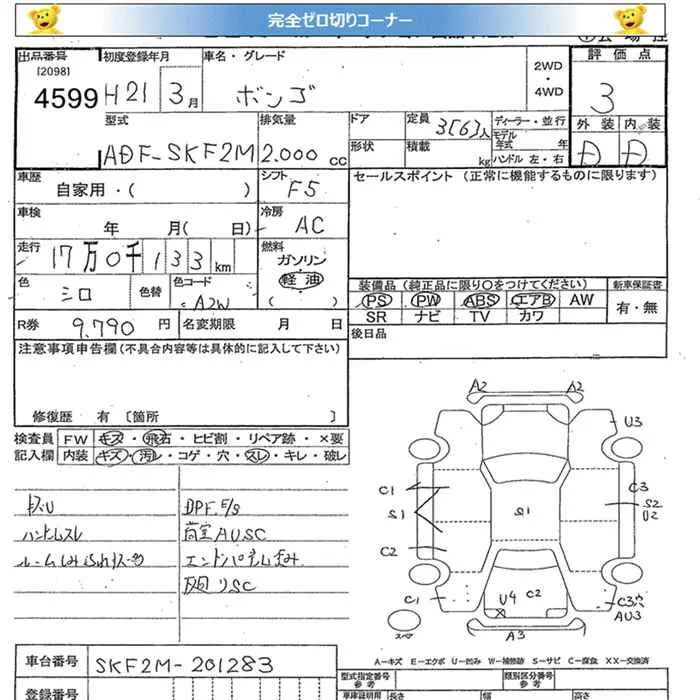 完全ゼロ切りコーナー
出品番号 初度登録年月 車名・グレード 評価点
[2098]
4599 H21 3月 ボンゴ 2WD・4WD 3
型式 排気量 ドア 定員 3[6]人 ディーラー・並行 外装 内装
ADF-SKF2M 2.000 cc 形状 積載 kg モデル年式 年 ハンドル 左・右 D D
車歴 シフト セールスポイント (正常に機能するものに限ります)
自家用・( ) F5
車検 冷房
年 月( 日) AC
走行 燃料
17万0千133km ガソリン
軽油
色 シロ 色替 色コード A2W ( )
装備品 (純正品に限り○をつけてください) 新車保証書
PS PW ABS エアB AW 有・無
SR ナビ TV カワ
R券 9.790 円 名変期限 月 日
後日品
注意事項申告欄(不具合内容等は具体的に記入して下さい)
修復歴 有 [箇所 ]
検査員 FW キズ・飛石・ヒビ割・リペア跡・×要
記入欄 内装 キズ・汚レ・コゲ・穴・スレ・キレ・破レ
DPF F/S
ハンドルスレ 荷室AUSC
A2 A2
U3
C1 C3
S1 S1 S2
U2
C2
C1 U4 C2 C3穴
AU3
スペア A3
車台番号 SKF2M-201283
A－キズ E－エクボ U－凹み W－補修跡 S－サビ C－腐食 XX－交換済
登録番号 型式指定番号 類別区分番号
参考 参考
車庫証明用 長さ 幅 高さ